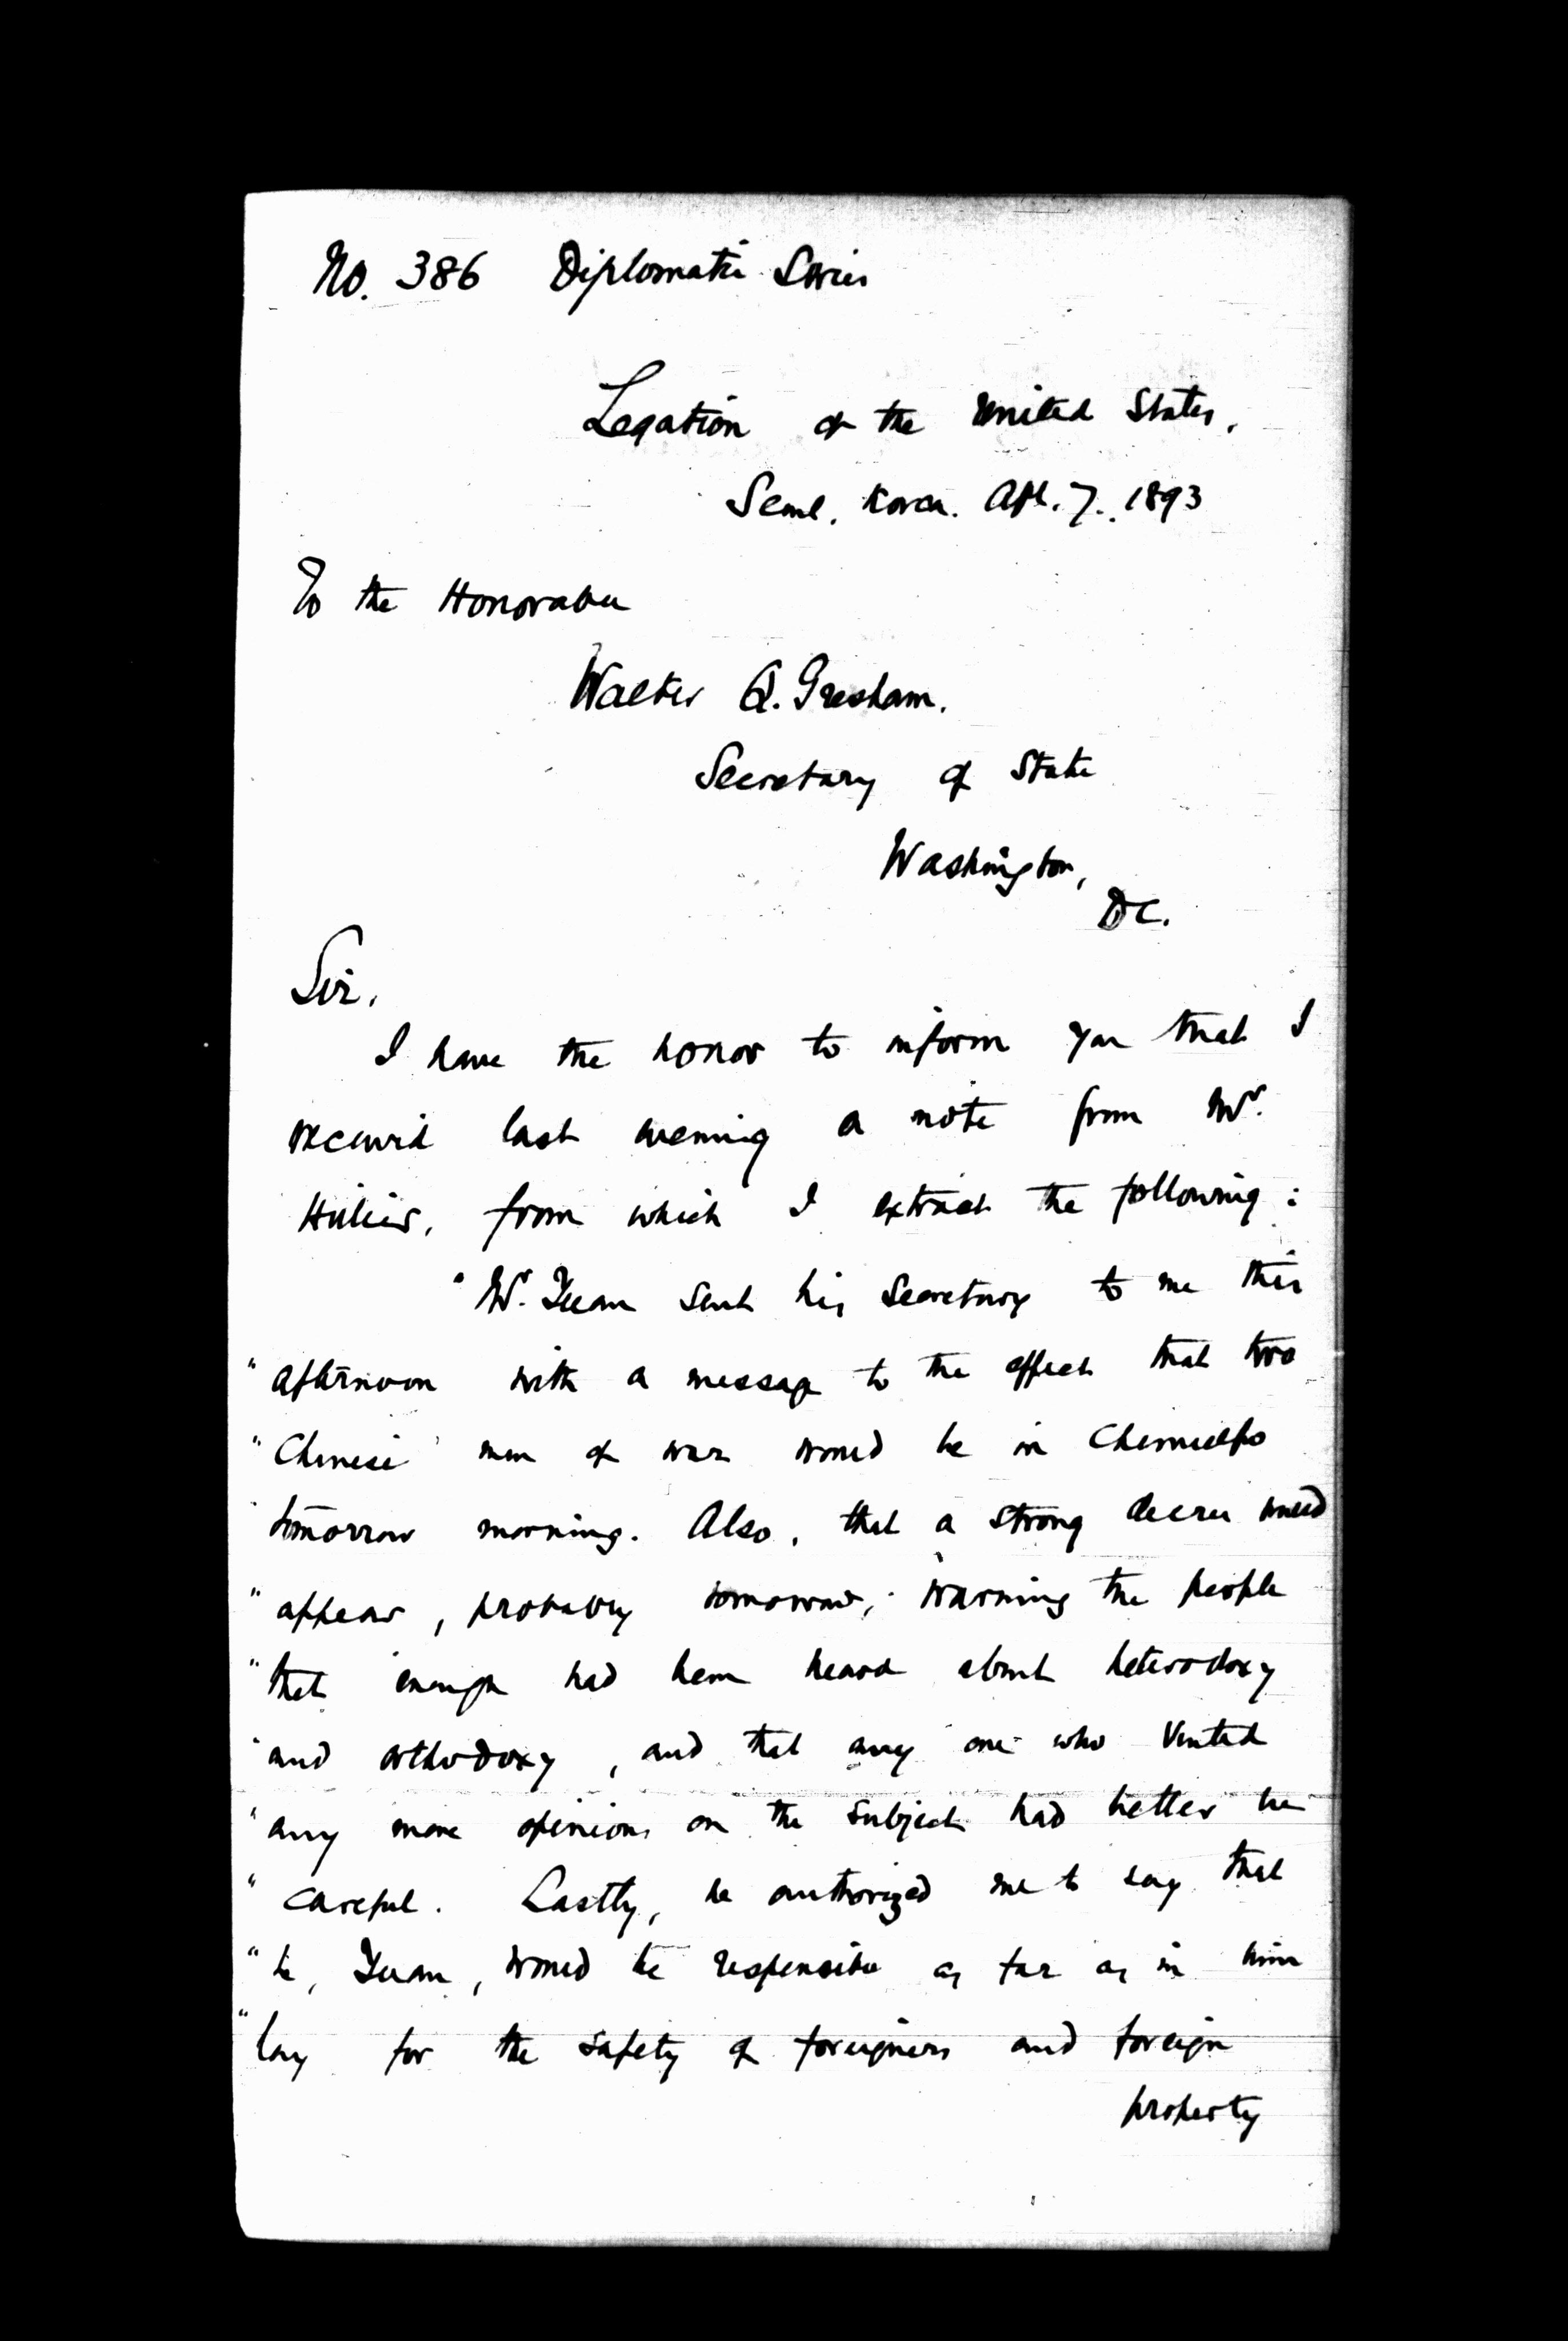 No. 386 Diplomatic Series
Legation of the United States,
Seoul, Korea. Apl. 7. 1893
To the Honorable
Walter Q. Gresham.
Secretary of State
Washington,
DC.
Sir,
I have the honor to inform you that I
received last evening a note from Mr.
Hillier, from which I extract the following:
"Mr. Yuan sent his Secretary to me this
"afternoon with a message to the effect that two
"Chinese men of war would be in Chemulpo
"tomorrow morning. Also, that a strong decree would
"appear, probably tomorrow, warning the people
"that enough had been heard about heterodoxy
"and orthodoxy, and that any one who vented
"any more opinions on the subject had better be
"careful. Lastly, he authorized me to say that
"he, Yuan, would be responsible as far as in him
"lay for the safety of foreigners and foreign
property